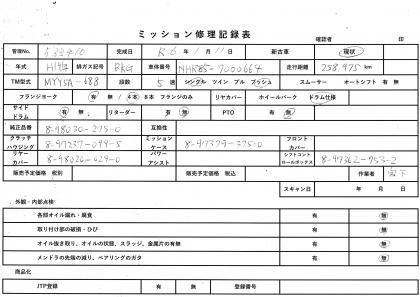 ミッション修理記録表
確認者 印
管理No. 533410 完成日 R6 年 1 月 11 日 新古車 現状
年式 H19 排ガス記号 BKG 車体番号 NHR85-7000664 走行距離 258,975 km
TM型式 MYY5A-688 段数 5 速 シングル ツイン プル プッシュ スムーサー オートシフト 有 無
フランジヨーク 有 無 / 4本 8本 フランジのみ リヤカバー ホイールパーク ドラム仕様
サイドドラム 有 無 リターダー 有 無 PTO 有 無
純正品番 8-98030-275-0 互換性
クラッチハウジング 8-97237-099-5 ミッションケース 8-97379-375-0 フロントカバー
リヤーカバー 8-98020-029-0 パワーアシスト シフトコントロールボックス 8-97362-753-2
販売予定価格 税別 販売予定価格 税込 作業者 宮下
スキャン日 年 月 日
外観・内部点検
各部オイル漏れ・腐食 有 無
取り付け部の破損・ひび 有 無
オイル抜き取り、オイルの状態、スラッジ、金属片の有無 有 無
メンドラの先端の減り、ベアリングのガタ 有 無
商品化
JTP登録 有 無